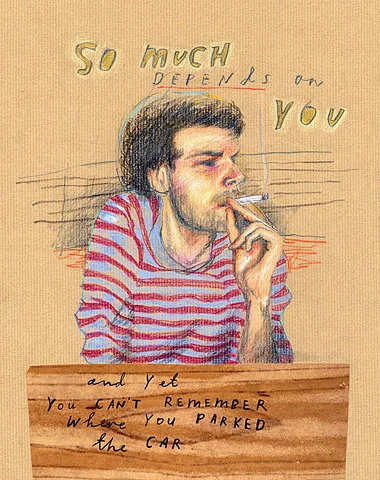 SO MUCH
DEPENDS on
YOU
and yet
YOU CAN'T REMEMBER
Where YOU PARKED
the CAR.